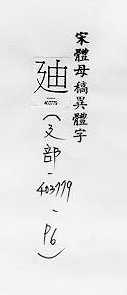 宋體母稿異體字
廸
403779
(廴部-403779-P6)